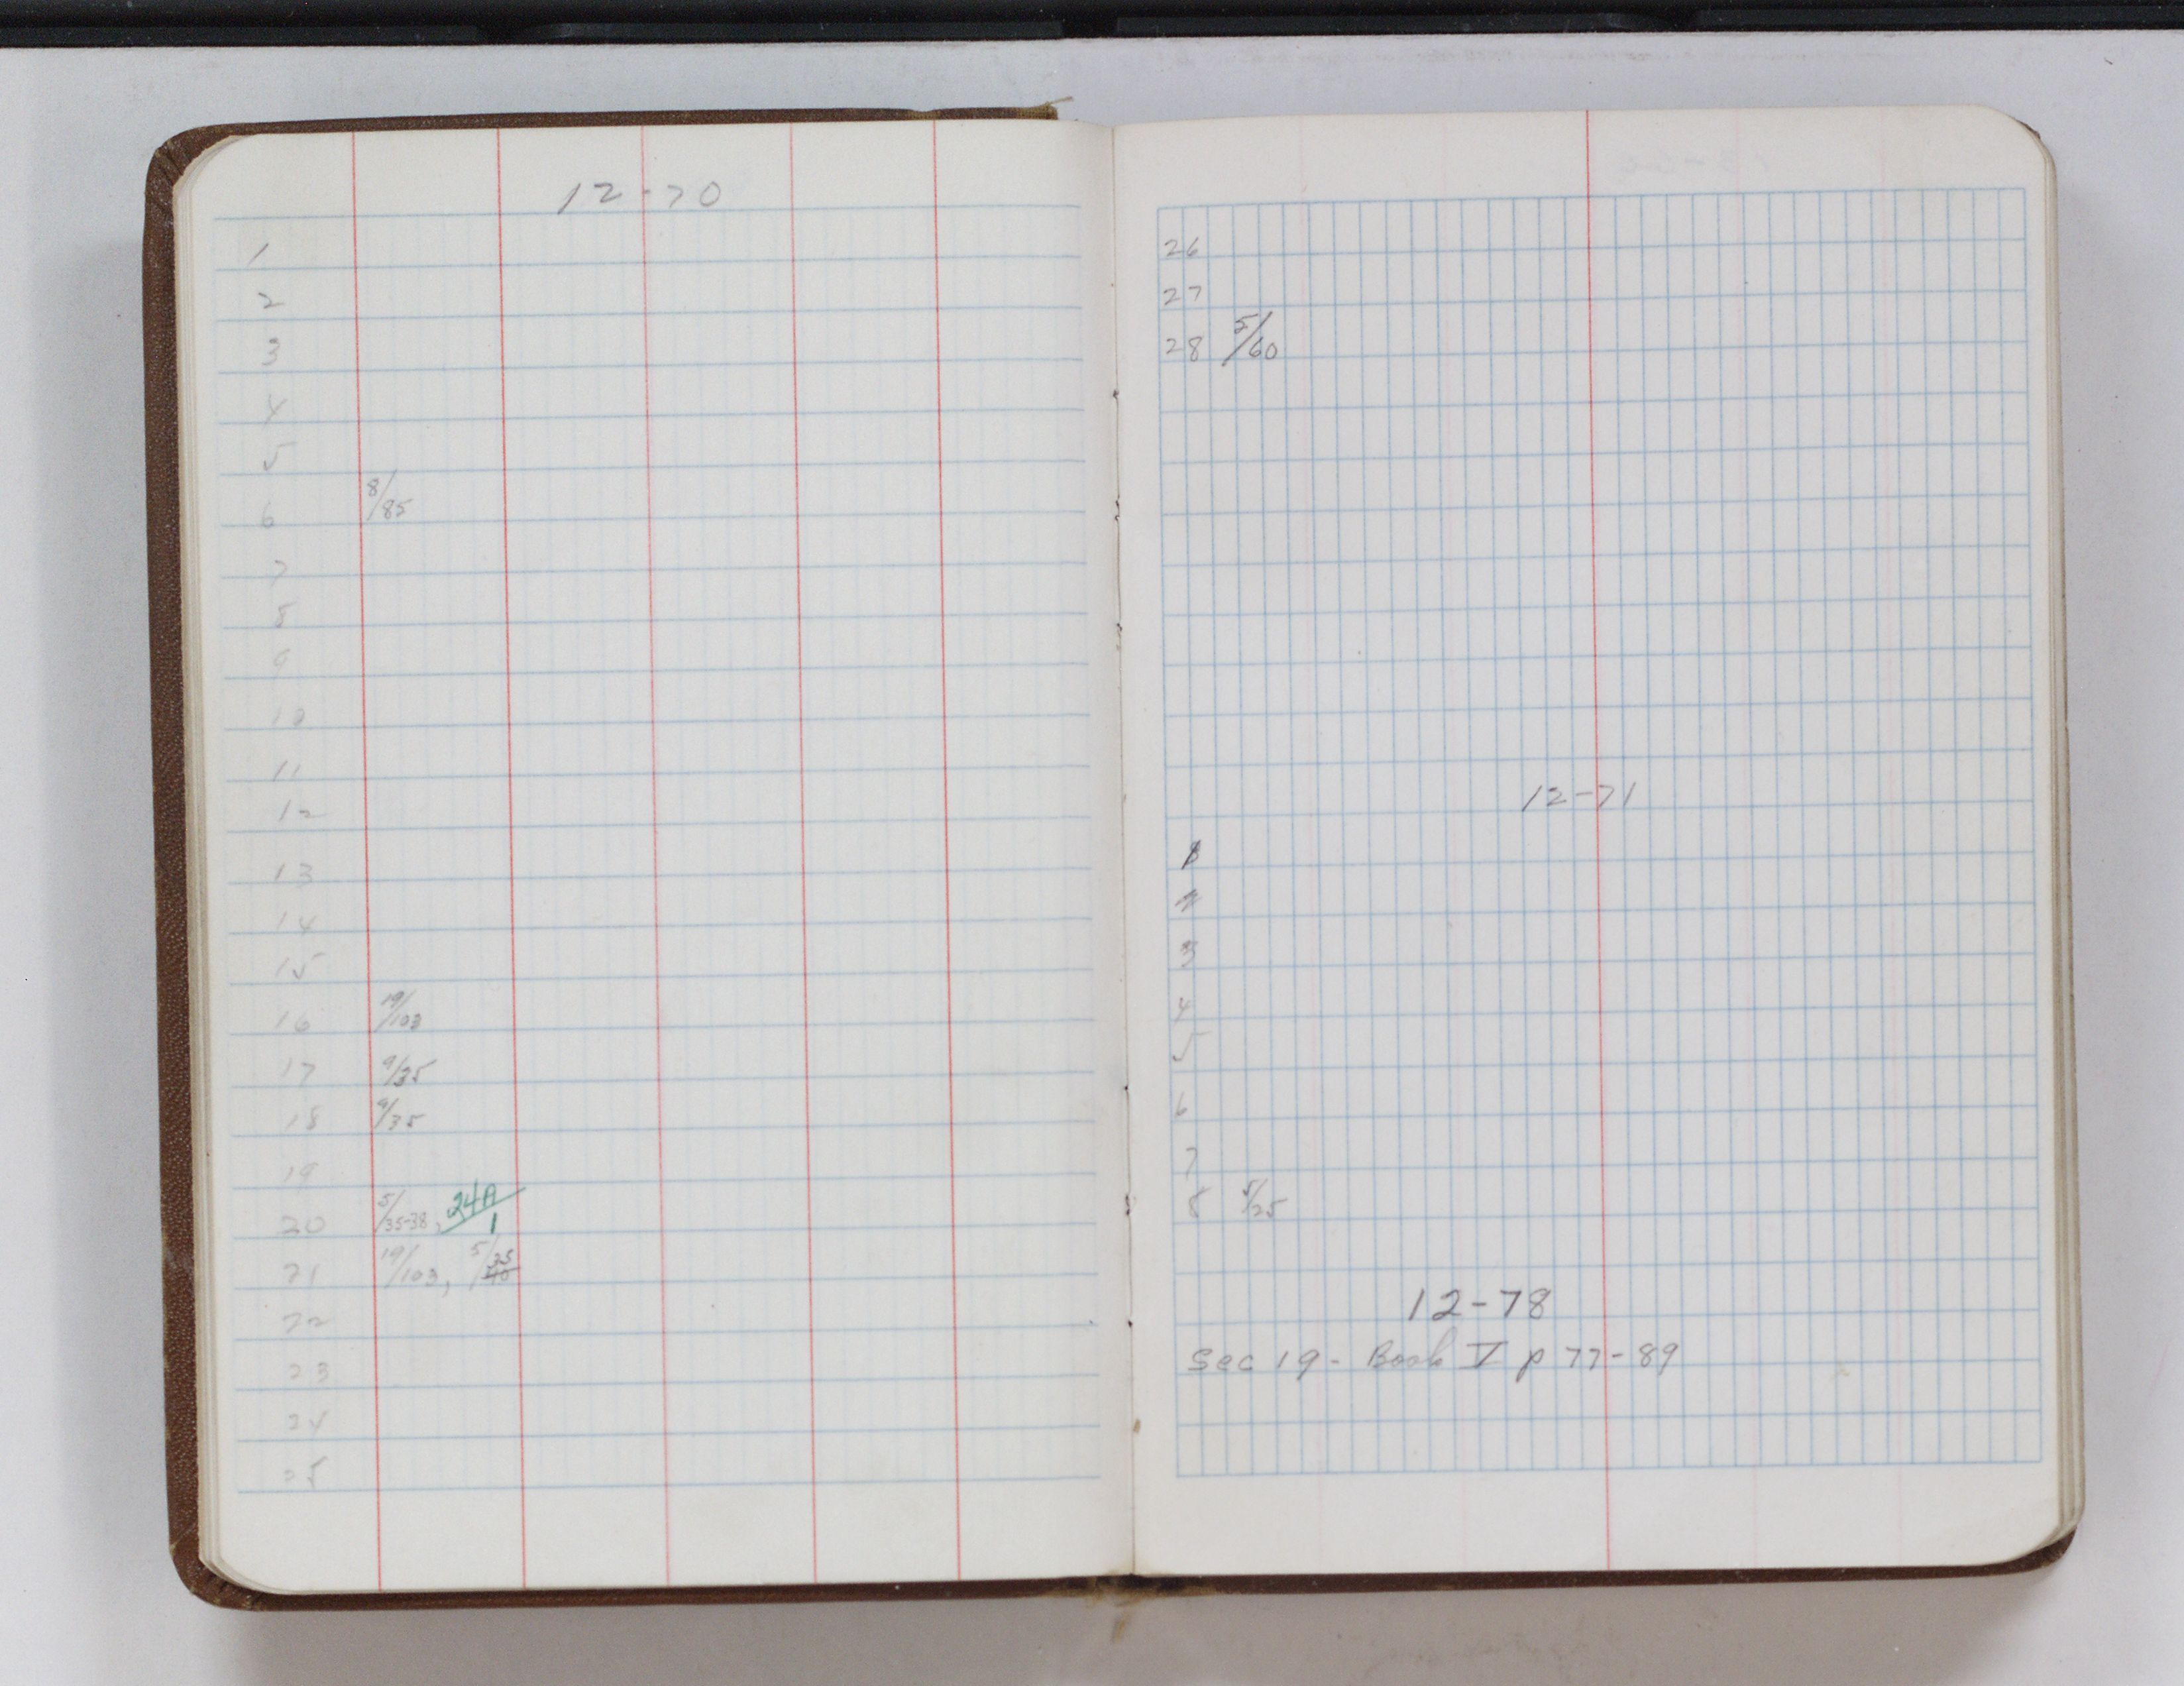 12-70
1
2
3
4
5
6 8/85
7
8
9
10
11
12
13
14
15
16 19/103
17 9/35
18 9/35
19
20 5/35-38, 24A/1
21 19/103, 5/35
22
23
24
25
26
27
28 5/60
12-71
1
2
3
4
5
6
7
8 5/25
12-78
Sec 19 - Book V p 77-89